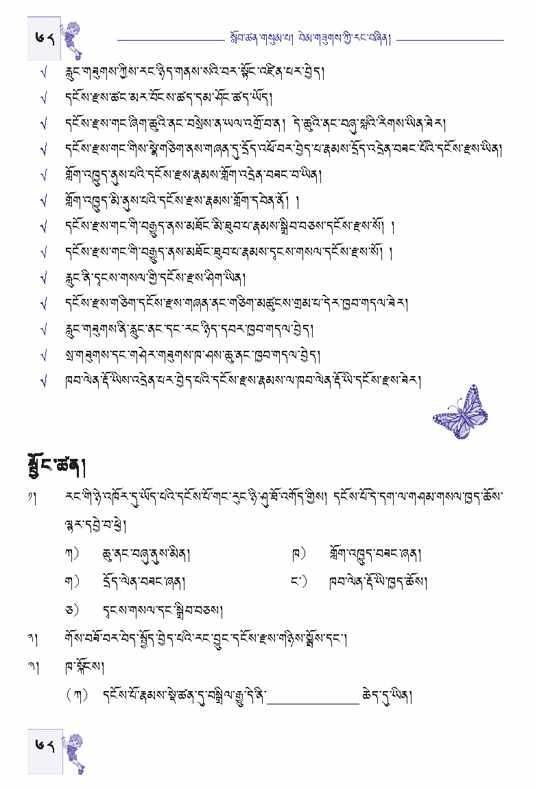 ༧༨
སློབ་ཚན་གསུམ་པ། བེམ་གཟུགས་ཀྱི་རང་བཞིན།
√ རླུང་གཟུགས་ཀྱིས་རང་ཉིད་གནས་སའི་བར་སྟོང་འཛིན་པར་བྱེད།
√ དངོས་རྫས་ཚང་མར་བོངས་ཚད་དམ་ཤོང་ཚད་ཡོད།
√ དངོས་རྫས་གང་ཞིག་ཆུའི་ནང་བསྲེས་ན་ཡལ་འགྲོ་བ་ན། དེ་ཆུའི་ནང་བཞུ་སླའི་རིགས་ཡིན་ཟེར།
√ དངོས་རྫས་གང་གིས་སྣེ་གཅིག་ནས་གཞན་དུ་དྲོད་འཕོ་བར་བྱེད་པ་རྣམས་དྲོད་འདྲེན་བཟང་པོའི་དངོས་རྫས་ཡིན།
√ གློག་འཁྱུད་ནུས་པའི་དངོས་རྫས་རྣམས་གློག་འདྲེན་བཟང་བ་ཡིན།
√ གློག་འཁྱུད་མི་ནུས་པའི་དངོས་རྫས་རྣམས་གློག་དབེན་ནོ། །
√ དངོས་རྫས་གང་གི་བརྒྱུད་ནས་མཐོང་མི་ཐུབ་པ་རྣམས་སྒྲིབ་བཅས་དངོས་རྫས་སོ། །
√ དངོས་རྫས་གང་གི་བརྒྱུད་ནས་མཐོང་ཐུབ་པ་རྣམས་དྭངས་གསལ་དངོས་རྫས་སོ། །
√ རླུང་ནི་དྭངས་གསལ་གྱི་དངོས་རྫས་ཤིག་ཡིན།
√ དངོས་རྫས་གཅིག་དངོས་རྫས་གཞན་ནང་གཅིག་མཚུངས་གྲམ་པ་དེར་ཁྱབ་གདལ་ཟེར།
√ རླུང་གཟུགས་ནི་རླུང་ནང་དང་རང་ཉིད་དབར་ཁྱབ་གདལ་བྱེད།
√ སྲ་གཟུགས་དང་གཤེར་གཟུགས་ཁ་ཤས་ཆུ་ནང་ཁྱབ་གདལ་བྱེད།
√ ཁབ་ལེན་རྡོ་ཡིས་འདྲེན་པར་བྱེད་པའི་དངོས་རྫས་རྣམས་ལ་ཁབ་ལེན་རྡོ་ཡི་དངོས་རྫས་ཟེར།
སྦྱོང་ཚན།
༡། རང་གི་ཉེ་འཁོར་དུ་ཡོད་པའི་དངོས་པོ་གང་རུང་ཉི་ཤུ་ཐོ་འགོད་གྱིས། དངོས་པོ་དེ་དག་ལ་གཤམ་གསལ་ཁྱད་ཆོས་
ལྟར་དབྱེ་བ་ཕྱེ།
ཀ) ཆུ་ནང་བཞུ་ནུས་མིན། ཁ) གློག་འཁྱུད་བཟང་ཞན།
ག) དྲོད་ལེན་བཟང་ཞན། ང་) ཁབ་ལེན་རྡོ་ཡི་ཁྱད་ཆོས།
ཅ) དྭངས་གསལ་དང་སྒྲིབ་བཅས།
༢། གོས་བཟོ་བར་བེད་སྤྱོད་བྱེད་པའི་རང་བྱུང་དངོས་རྫས་གཉིས་སྨྲོས་དང་།
༣། ཁ་སྐོངས།
(ཀ) དངོས་པོ་རྣམས་སྡེ་ཚན་དུ་བསྒྲིལ་རྒྱུ་དེ་ནི་ ______________ ཆེད་དུ་ཡིན།
༧༨